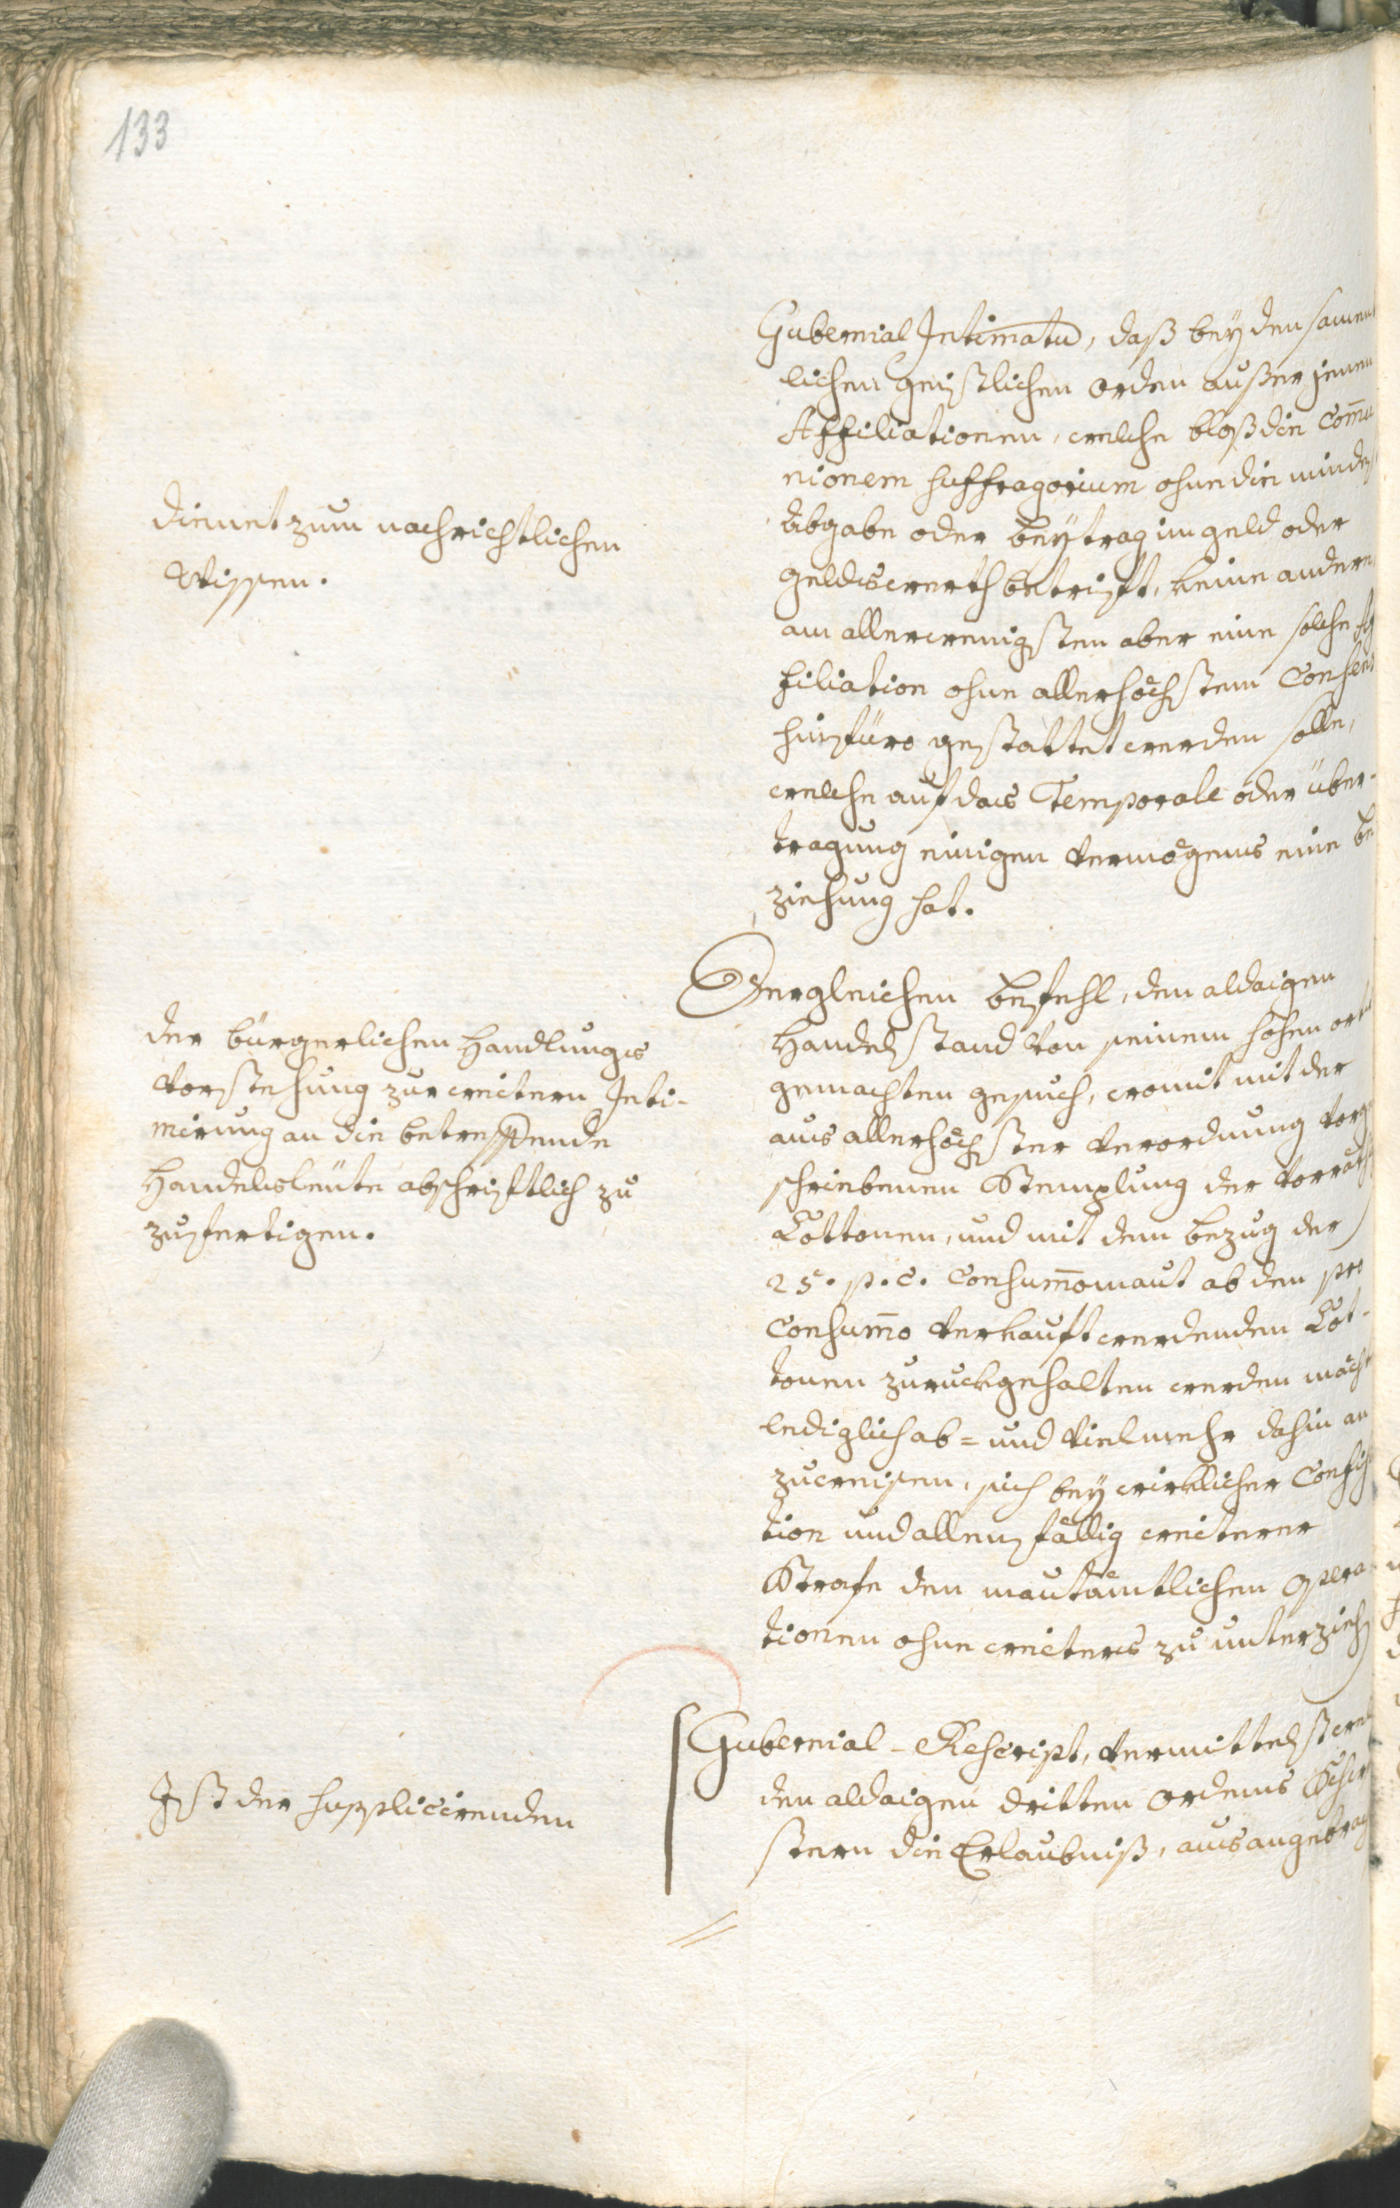 133
Gubernial Intimatu, daß bey den samen
lichen geistlichen Orden ausser jenen
Affiliationen, welche bloß die Commu
nionem suffragorium ohne die mindes
Abgabe oder Beytrag im geld oder
geldswerth betrifft, keine andere
am allerwenigsten aber eine solche Af
filiation ohne allerhöchstem Consens
hinfüro gestattet werden solle,
welche auf das Temporale oder über-
tragung einigen Vermögens eine be
ziehung hat.
dienet zum nachrichtlichen
Wissen.
Dergleichen Befehl, den aldaigen
Handelsstand von seinem hohen orts
gemachten gesuch, womit mit der
aus allerhöchster Verordnung vorge
schriebenen Stemplung der Vorräthi
Cottonen, und mit dem bezug der
25. p. c. Consummomaut ab den pro
Consummo verkauft werdenden Cot-
tonen zuruckgehalten werden möcht
lediglich ab= und vielmehr dahin an
zuweisen, sich bey wirklicher Confis
tion und allenfällig weiterer
Strafe den mautämtlichen Opera
tionen ohne weiters zu unterzieh
der bürgerlichen Handlungs
Vorstehung zur weitern Inti-
mirung an die betreffende
Handelsleute abschriftlich zu
zufertigen.
Gubernial-Rescript, vermittelst wel
den aldaigen dritten Ordens Schwe
stern die Erlaubniß, aus angebrag
Ist der supplicirenden